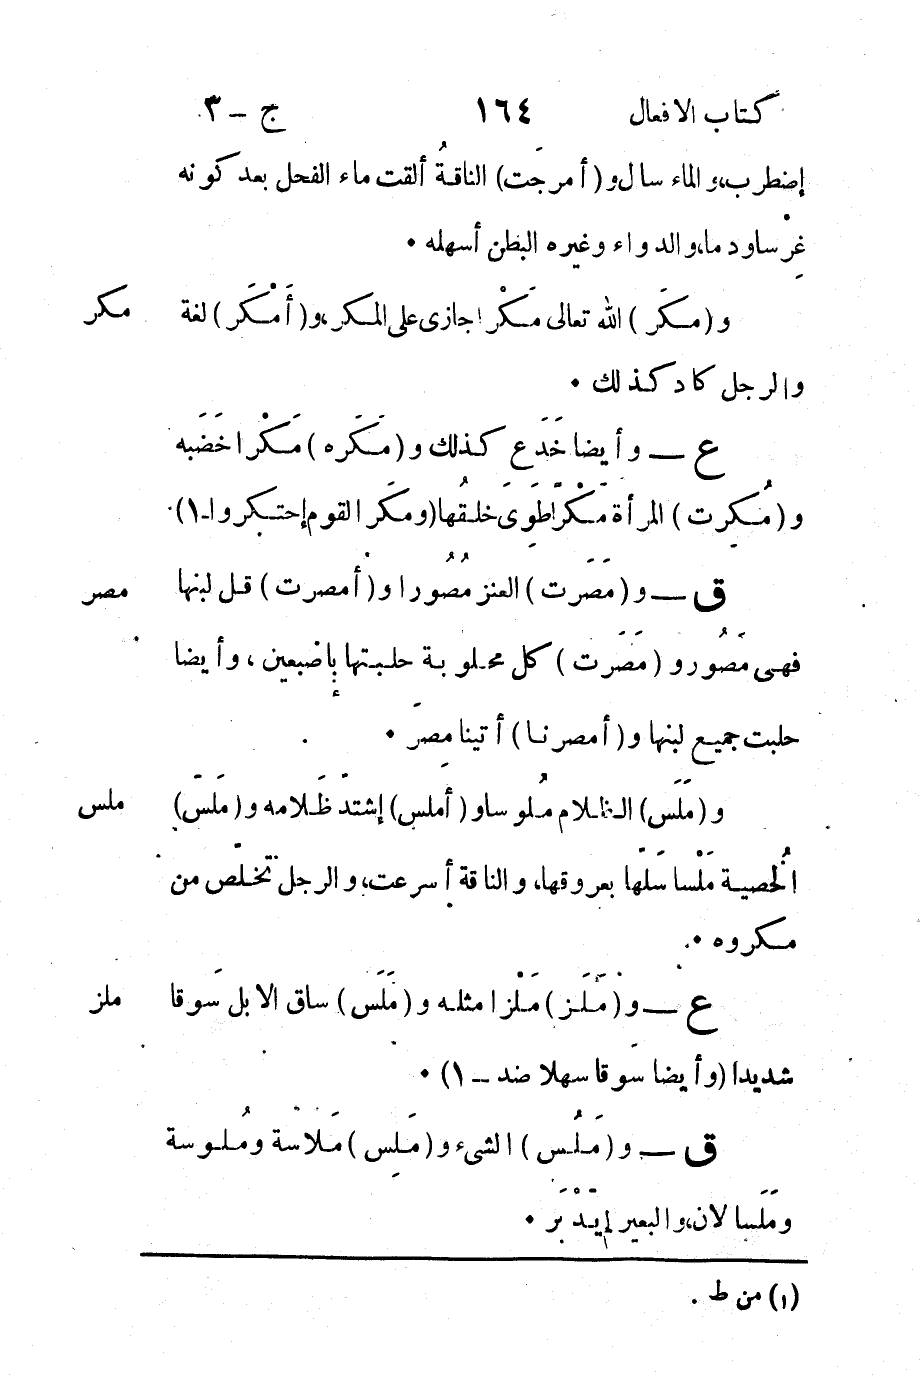 كتاب الافعال ١٦٤ ج – ٣
إضطرب، والماء سال و (أمرجَت) الناقةُ ألقت ماء الفحل بعد كونه
غِرْسا ودما، والدواء وغيره البطن أسهله •
و (مكَر) الله تعالى مَكْرا جازى على المكر، و (أَمْكَر) لغة مكر
والرجل كاد كذلك •
ع – وأيضا خَدَع كذلك و (مَكَره) مَكْرا خضَبه
و (مُكِرت) المرأة مَكْرًا طُوِىَ خلقُها (ومكَر القوم إحتكروا – ١)
ق – و (مَصَرت) العنز مُصُورا و (أمصرت) قل لبنها مصر
فهى مَصُور و (مَصَرت) كل محلوبة حلبتها بإصْبعين، وأيضا
حلبت جميع لبنها و (أمصرنا) أتينا مِصرَ •
و (مَلَس) الظلام مُلوسا و (أملس) إشتدّ ظَلامه و (ملَسّ) ملس
الُخصية مَلْسا سَلّها بعروقها، والناقة أسرعت، والرجل تخلّص من
مكروه •
ع – و (مَلَز) مَلْزا مثله و (مَلَس) ساق الابل سَوقا ملز
شديدا (وأيضا سوقا سهلا ضد – ١) •
ق – و (مَلُس) الشىء و (مَلِس) مَلاسة ومُلوسة
ومَلَسا لان، والبعير لم يَدْبَر •
(١) من ط .